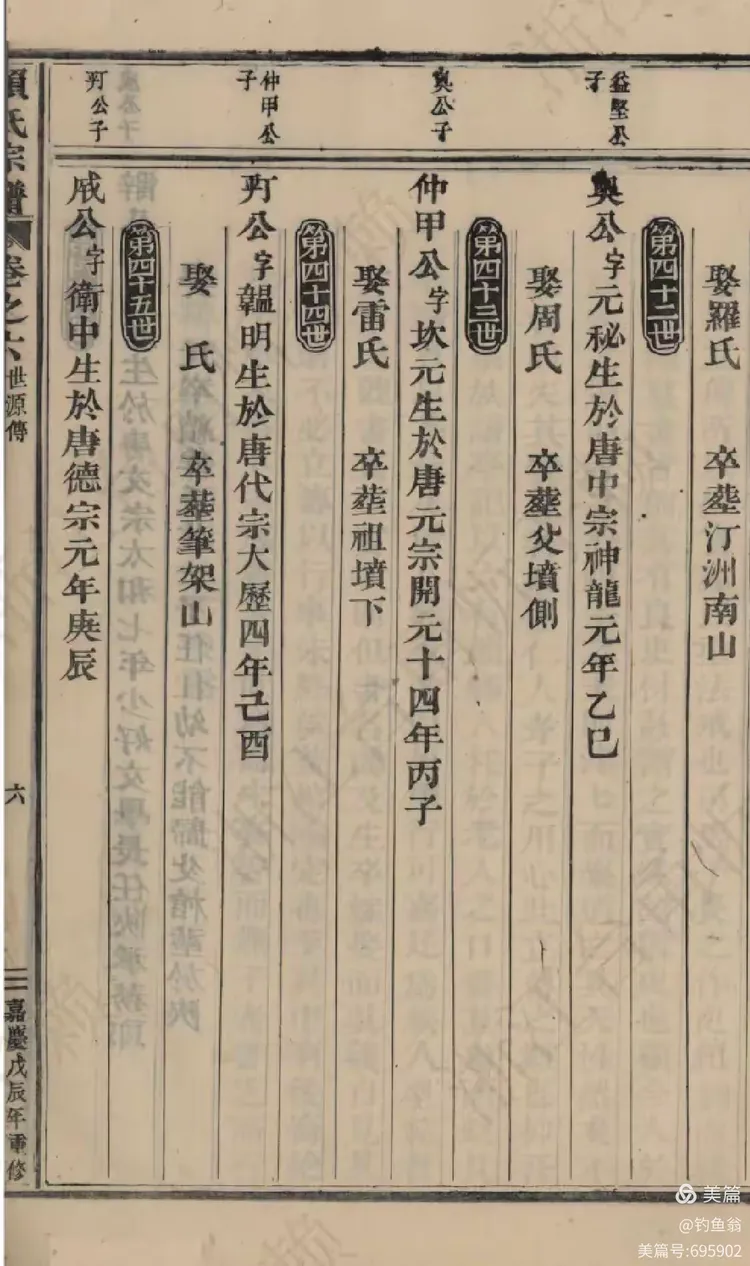 益堅公子
奧公子
仲甲公子
䎳公子
娶羅氏 卒塟汀洲南山
第四十二世
奧公字元秘生於唐中宗神龍元年乙巳
娶周氏 卒塟父墳側
第四十三世
仲甲公字坎元生於唐元宗開元十四年丙子
娶雷氏 卒塟祖墳下
第四十四世
公字韞明生於唐代宗大歷四年己酉
娶 氏 卒塟筆架山
第四十五世
公字衛中生於唐德宗元年庚辰
氏宗譜 卷之六 世源傳 六 嘉慶戊辰年重修
美篇
@钓鱼翁
美篇号:695902